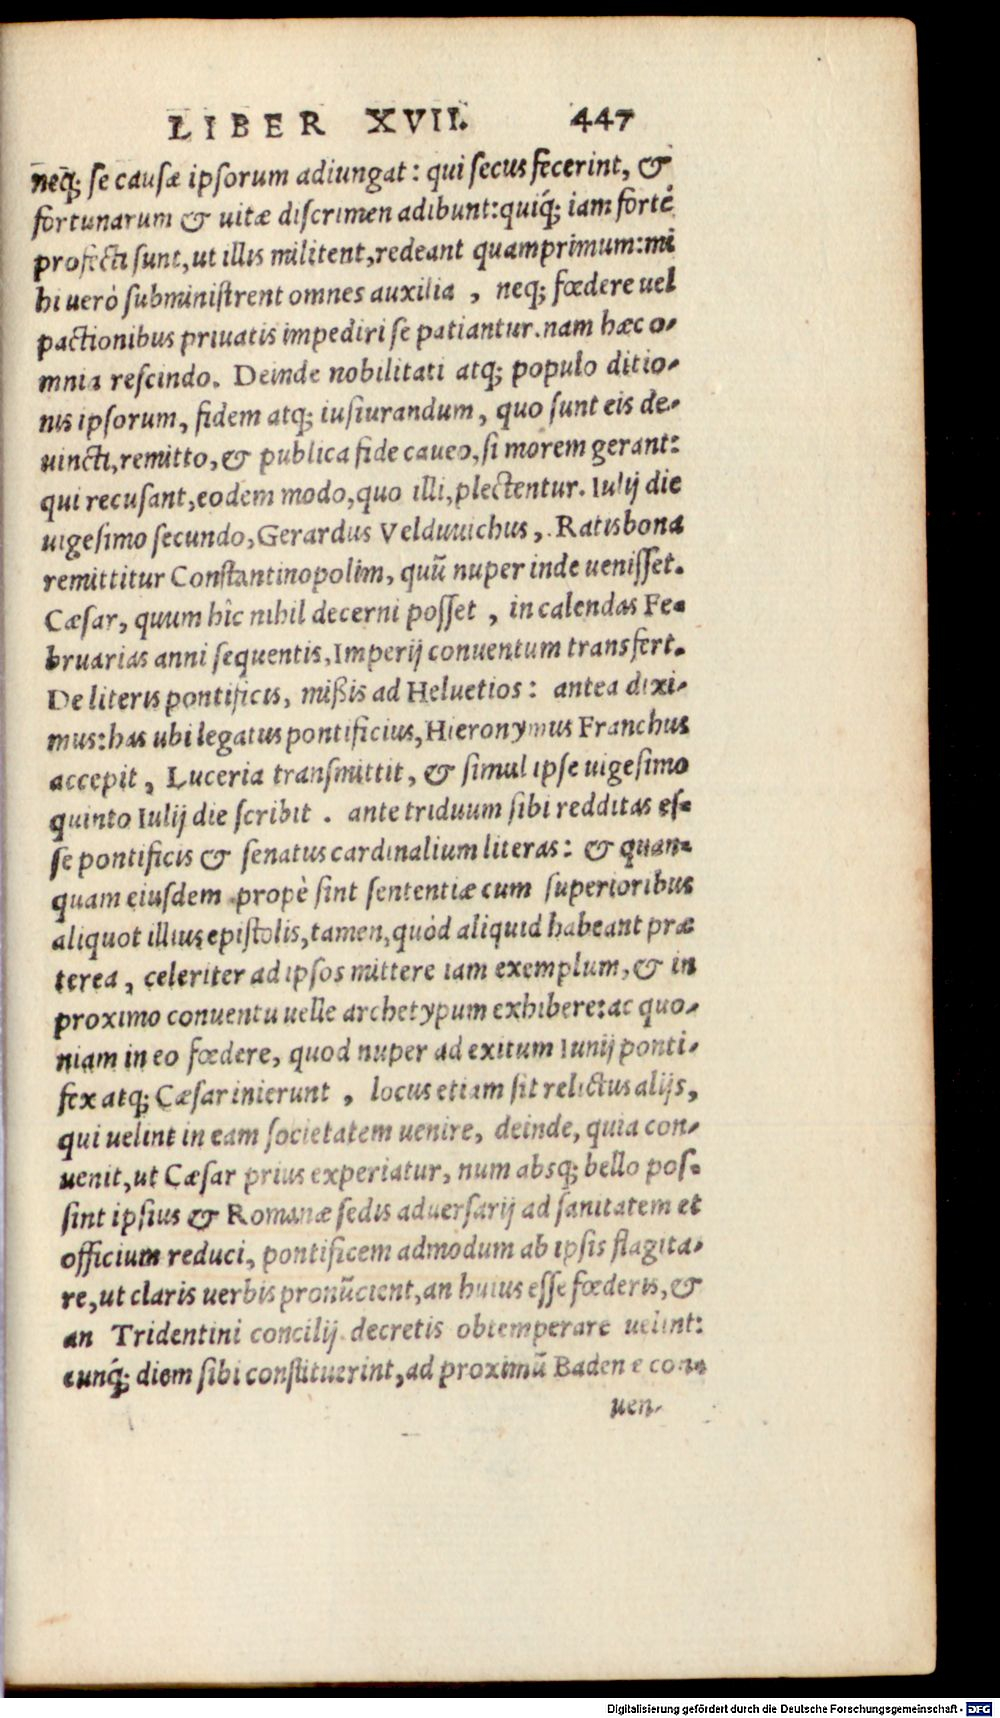 LIBER XVII. 447
neq́; se causæ ipsorum adiungat: qui secus fecerint, &
fortunarum & uitæ discrimen adibunt:quiq́; iam fortè
profecti sunt,ut illis militent,redeant quamprimum:mi
hi uerò subministrent omnes auxilia , neq; fœdere uel
pactionibus priuatis impediri se patiantur.nam hæc o-
mnia rescindo. Deinde nobilitati atq; populo ditio-
nis ipsorum, fidem atq; iusiurandum, quo sunt eis de-
uincti,remitto,& publica fide caueo,si morem gerant:
qui recusant,eodem modo,quo illi,plectentur. Iulij die
uigesimo secundo,Gerardus Velduuichus, Ratisbona
remittitur Constantinopolim, quũ nuper inde uenisset.
Cæsar, quum hîc nihil decerni posset , in calendas Fe-
bruarias anni sequentis,Imperij conuentum transfert.
De literis pontificis, mißis ad Heluetios: antea dixi-
mus:has ubi legatus pontificius,Hieronymus Franchus
accepit, Luceria transmittit, & simul ipse uigesimo
quinto Iulij die scribit . ante triduum sibi redditas es-
se pontificis & senatus cardinalium literas: & quan-
quam eiusdem propè sint sententiæ cum superioribus
aliquot illius epistolis,tamen,quòd aliquid habeant præ
terea, celeriter ad ipsos mittere iam exemplum,& in
proximo conuentu uelle archetypum exhibere:ac quo-
niam in eo fœdere, quod nuper ad exitum Iunij ponti-
fex atq; Cæsar inierunt , locus etiam sit relictus alijs,
qui uelint in eam societatem uenire, deinde, quia con-
uenit,ut Cæsar prius experiatur, num absq; bello pos-
sint ipsius & Romanæ sedis aduersarij ad sanitatem et
officium reduci, pontificem admodum ab ipsis flagita-
re,ut claris uerbis pronũcient,an huius esse fœderis,&
an Tridentini concilij decretis obtemperare uelint:
eunq́; diem sibi constituerint,ad proximũ Badenę con-
uen-
Digitalisierung gefördert durch die Deutsche Forschungsgemeinschaft - DFG